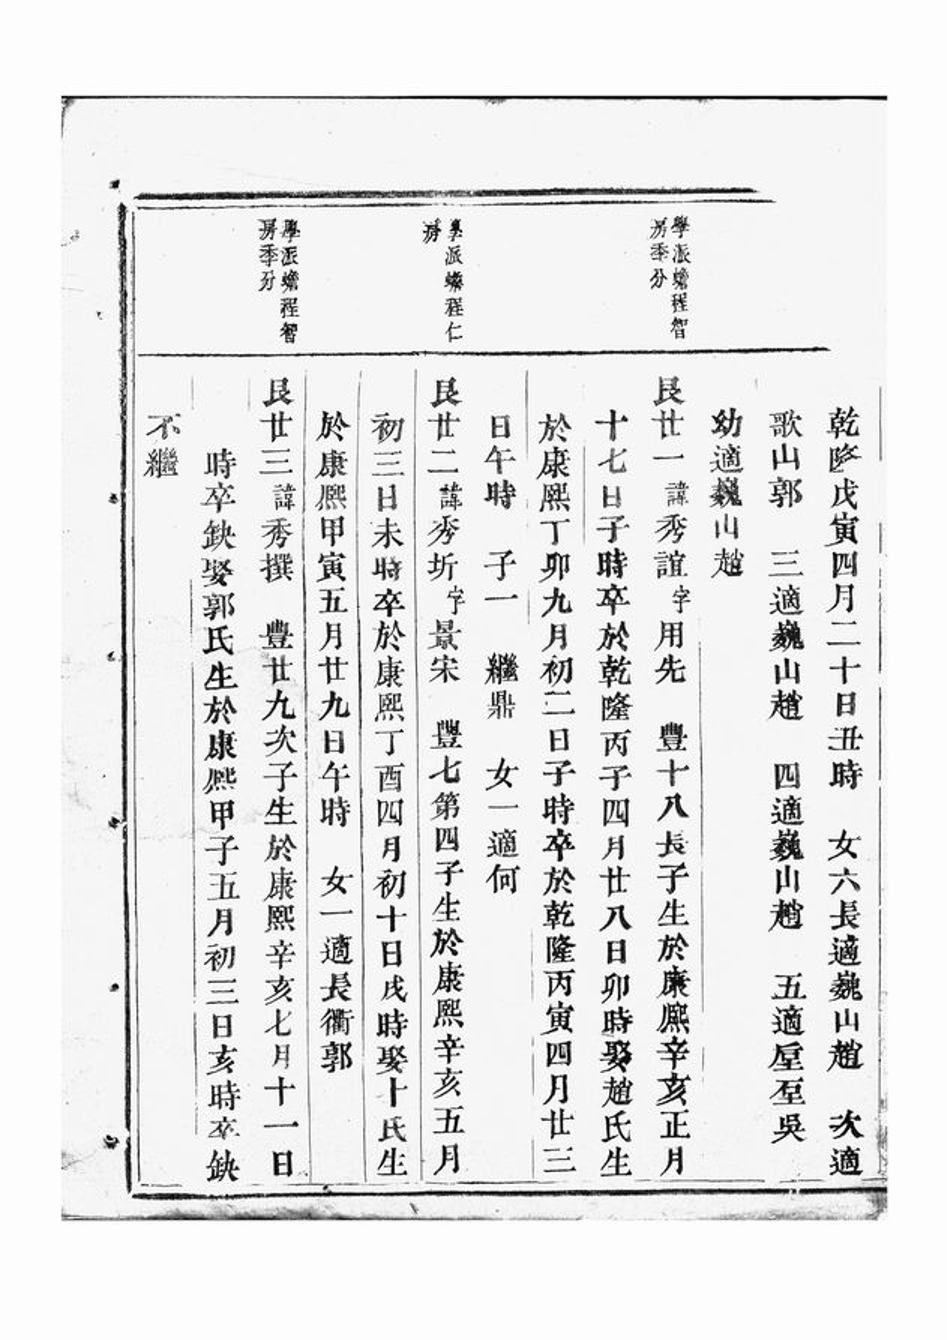 乾隆戊寅四月二十日丑時　女六長適巍山趙　次適
歌山郭　三適巍山趙　四適巍山趙　五適垕至吳
幼適巍山趙
學派蟾程智
房季分
艮廿一諱秀誼字用先　豐十八長子生於康熙辛亥正月
十七日子時卒於乾隆丙子四月廿八日卯時娶趙氏生
於康熙丁卯九月初二日子時卒於乾隆丙寅四月廿三
日午時　子一　繼鼎　女一適何
學派蟾程仁
房
艮廿二諱秀圻字景宋　豐七第四子生於康熙辛亥五月
初三日未時卒於康熙丁酉四月初十日戌時娶十氏生
於康熙甲寅五月廿九日午時　女一適長衢郭
學派蟾程智
房季分
艮廿三諱秀撰　豐廿九次子生於康熙辛亥七月十一日
時卒缺娶郭氏生於康熙甲子五月初三日亥時卒缺
不繼